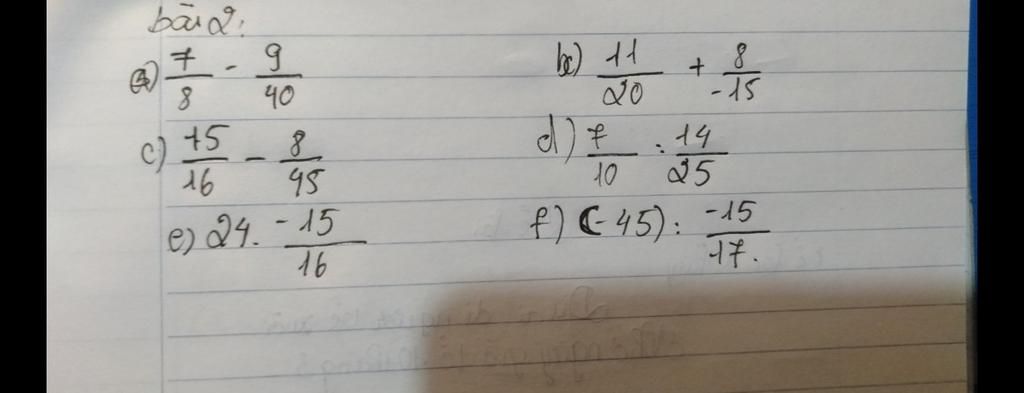 bài 2:
a) 7/8 - 9/40
b) 11/20 + 8/-15
c) 15/16 - 8/45
d) 7/10 : 14/25
e) 24. -15/16
f) (-45) : -15/17.